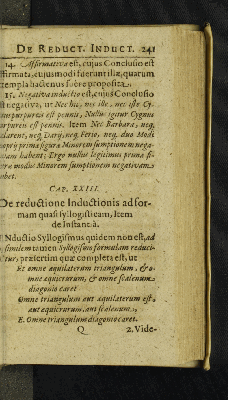 DE REDUCT. INDUCT. 241
14. Affirmativa est, cujus Conclusio est
affirmata, cujusmodi fuerunt illæ, quarum
exempla hactenus fuere proposita.
15. Negativa inductio est, cujus Conclusio
est negativa, ut Nec hic, nec ille, nec iste Cy-
gnus purpureus est pennis, Nullus igitur Cygnus
purpureus est pennis. Item Nec Barbara, neq,
Celarent, neq, Darij, neq, Ferio, neq, duo Modi
primæ figuræ Minorem sumptionem nega-
tivam habent; Ergo nullus legitimus primæ fi-
guræ modus Minorem sumptionem negativam
habet.
CAP. XXIII.
De reductione Inductionis ad for-
mam quasi syllogisticam, Item
de Instantiâ.
INductio Syllogismus quidem non est, ad
similem tamen Syllogismo formulam reduci-
tur, præsertim quæ completa est, ut
Et omne æquilaterum triangulum, & o-
mne æquicrurum, & omne scalenum
diagonio caret
Omne triangulum aut æquilaterum est,
aut æquicrurum, aut scalenum,
E. Omne triangulum diagonio caret.
Q 2. Vide-